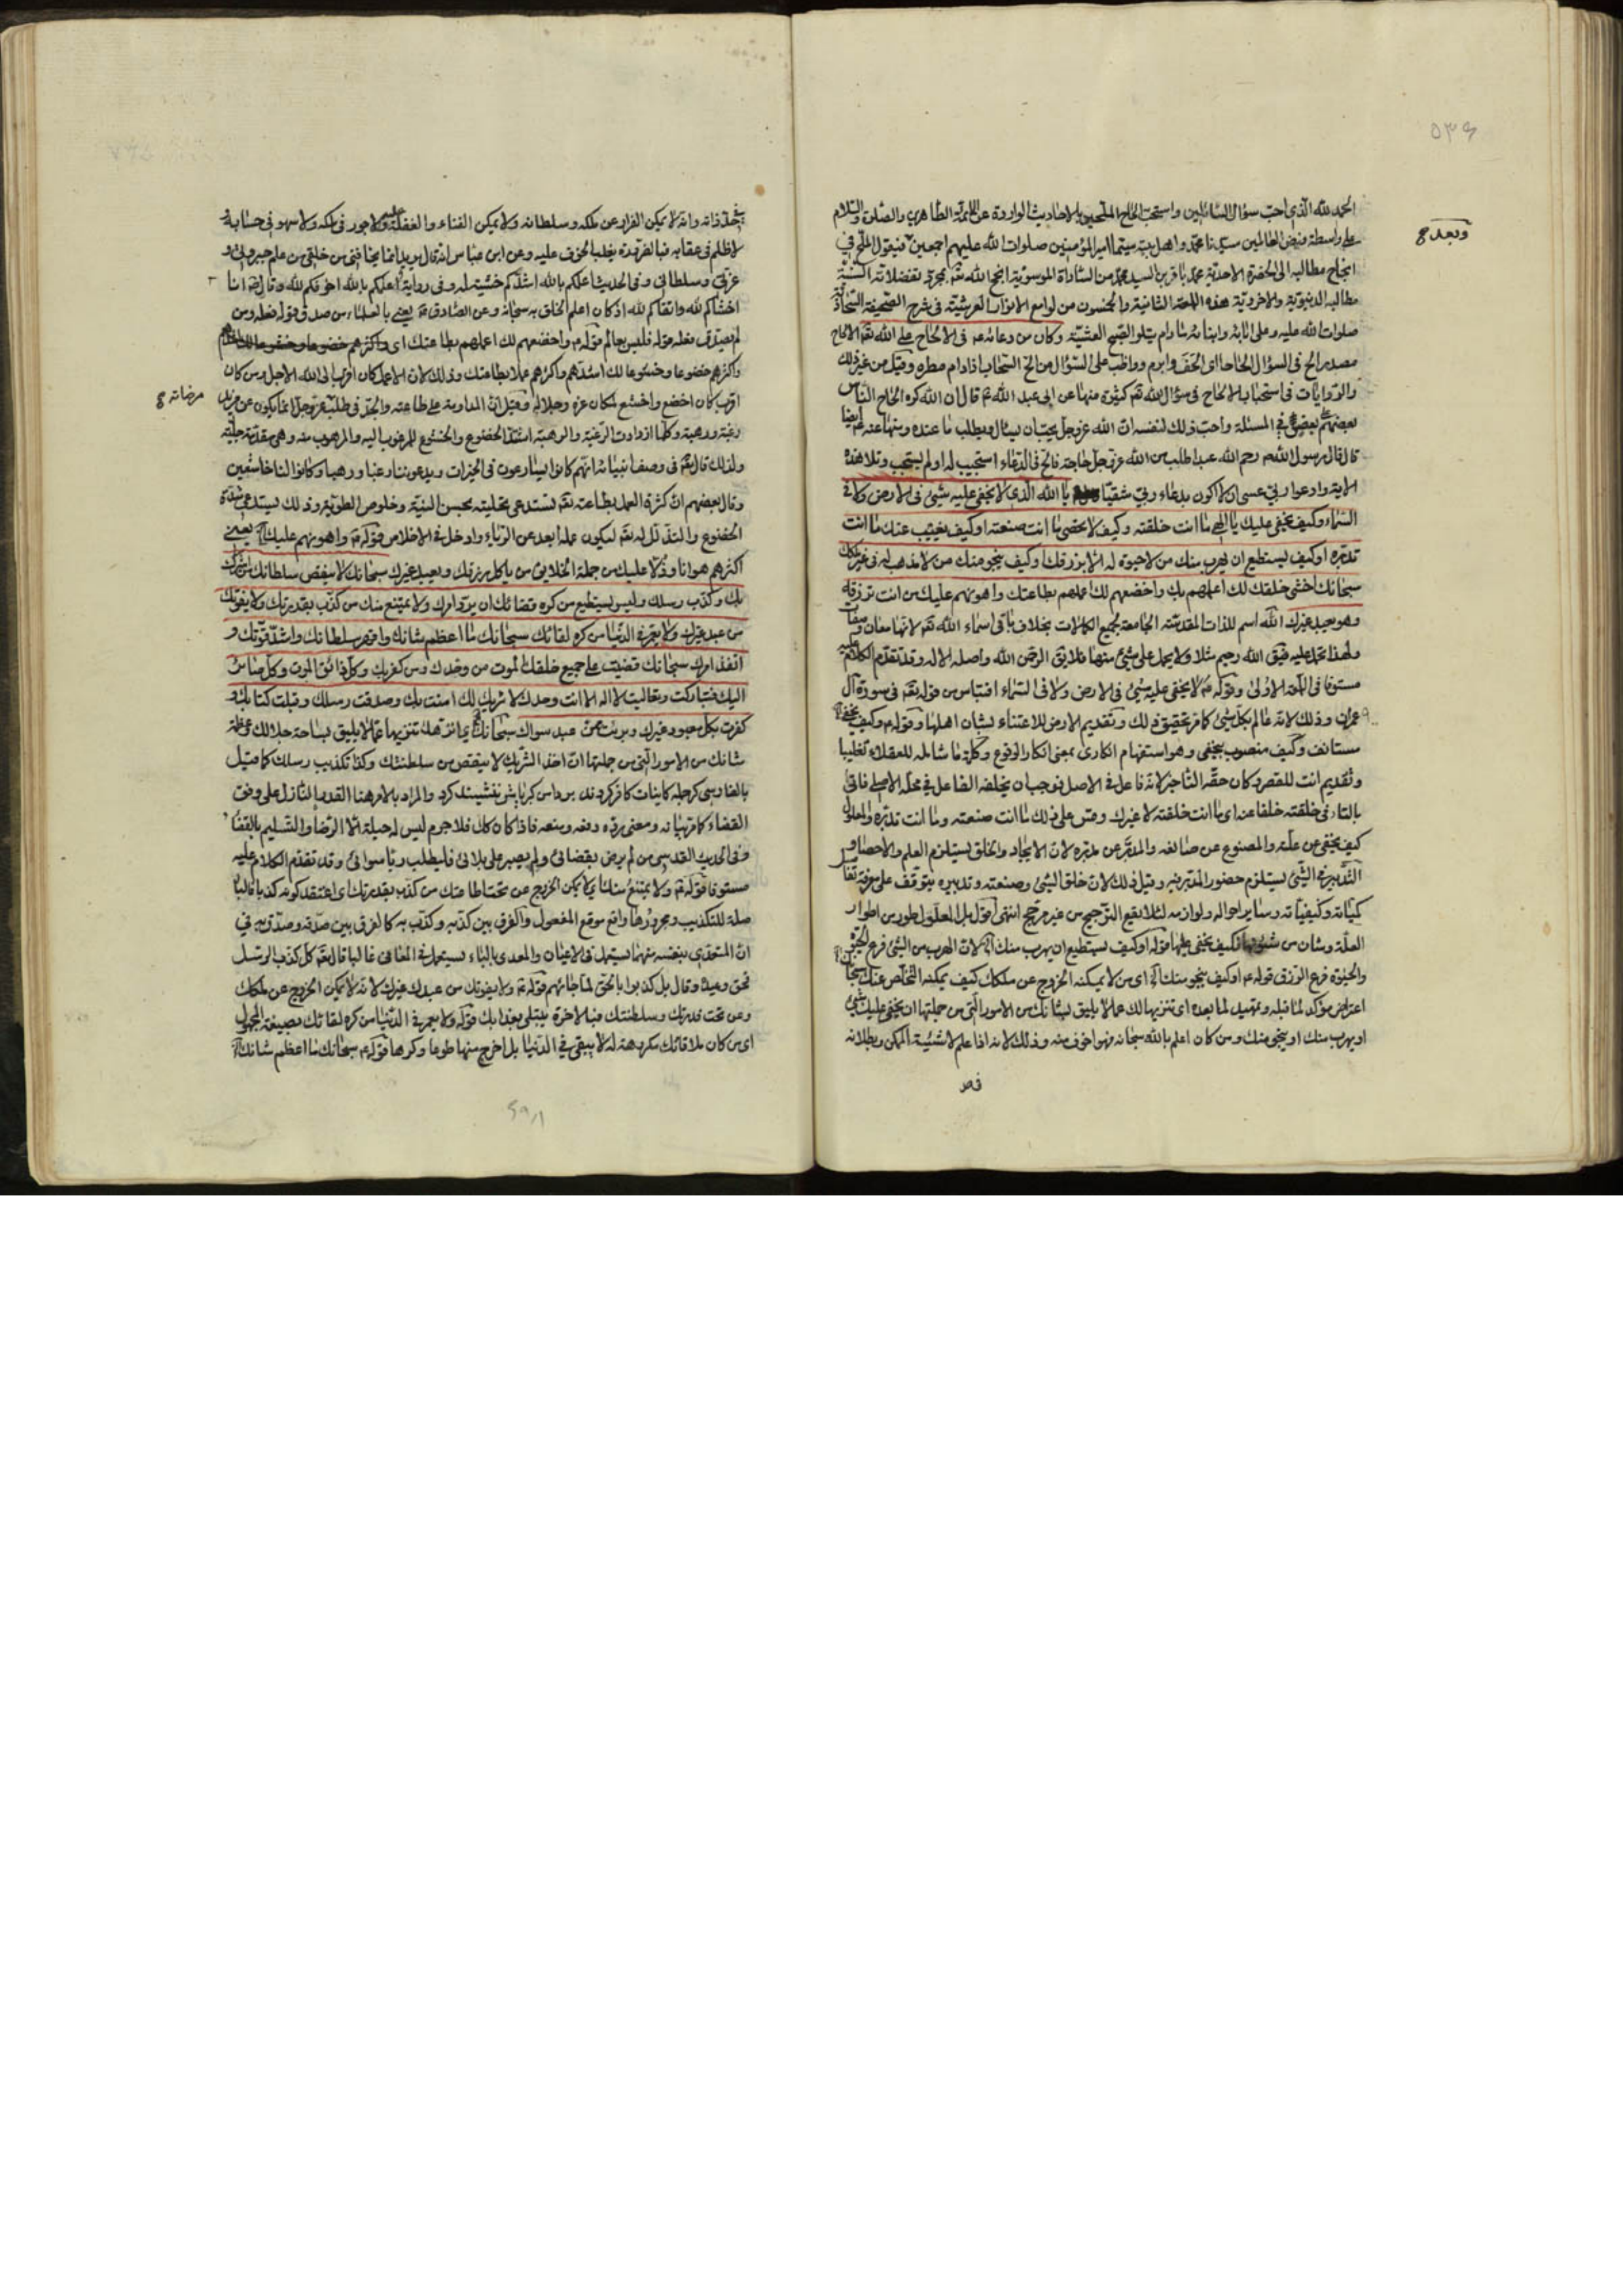 ٥٣٤
الحمد لله الذی احب سؤال السائلین واستحب الحاح الملحین بالاحادیث الواردة عن الائمة الطاهرین والصلوة والسلام
وبعد
علی واسطة فیض العالمین سیدنا محمد واهل بیته سیما امیر المؤمنین صلوات الله علیهم اجمعین فیقول الملح فی
انجاح مطالبه الی الحضرة الاحدیة محمد باقر بن السید محمد من السادات الموسویة انجح الله تعم بمحمد بفضلاته السنیة
مطالبه الدنیویة والاخرویة هذه اللمعة الثانیة والخمسون من لوامع الانوار العرشیة فی شرح الصحیفة السجادیة
صلوات الله علیه وعلی ابائه وابنائه مادام یتلو الصبح العشیة وكان من دعائه ع فی الالحاح علی الله تعم الالحاح
مصدر الح فی السؤال الحاحا اذا الحف وابرم وواظب علی السؤال من الح السحاب اذا دام مطره وقیل من غیر ذلك
والروایات فی استحباب الالحاح فی سؤال الله تعم كثیرة منها عن ابی عبد الله ع قال ان الله كره الحاح الناس
بعضهم علی بعض فی المسئلة واحب ذلك لنفسه ان الله عز وجل یحب ان یسال ویطلب ما عنده ومنها عنه ع ایضا
قال قال رسول الله ص رحم الله عبدا طلب من الله عز وجل حاجة فالح فی الدعاء استجیب له او لم یستجب وتلا هذه
الایة وادعوا ربی عسی ان لا اكون بدعاء ربی شقیا یا الله الذی لا یخفی علیه شیئ فی الارض ولا فی
السماء وكیف یخفی علیك یا الهی ما انت خلقته وكیف لا تحصی ما انت صنعته او كیف یغیب عنك ما انت
تدبره او كیف یستطیع ان یهرب منك من لا حیوة له الا برزقك او كیف ینجو منك من لا مذهب له فی غیر ملكك
سبحانك اخشی خلقك لك اعلمهم بك واخضعهم لك اعملهم بطاعتك واهونهم علیك من انت ترزقه
وهو یعبد غیرك الله اسم للذات المقدسة الجامعة لجمیع الكمالات بخلاف باقی اسماء الله تعم لانها معان وصفات
ولهذا تحمل علیه فیق الله رحیم مثلا ولا یحمل علی شیئ منها فلا یق الرحمن الله واصله الاله وقد تقدم الكلام علیه
مستوفا فی اللمعة الاولی وقوله ع لا یخفی علیه شیئ فی الارض ولا فی السماء اقتباس من قوله تعم فی سورة آل
عمران وذلك لانه عالم بكل شیئ كما مر تحقیق ذلك وتقدیم الارض للاعتناء بشان اهلها وقوله ع وكیف یخفی
مستانف وكیف منصوب بیخفی وهو استفهام انكاری بمعنی انكار الوقوع وكلمة ما شاملة للعقلاء تغلیبا
وتقدیم انت للقصر وكان حقه التاخیر لانه فاعل فی الاصل فوجب ان یخلفه الفاعل فی محله الاصلی فاتی
بالتاء فی خلقته خلفا عنه ای ما انت خلقته لا غیرك وقس علی ذلك ما انت صنعته وما انت تدبره والمعلول
كیف یخفی عن علته والمصنوع عن صانعه والمدبر عن مدبره لان الایجاد والخلق یستلزم العلم والاحصاء و
التدبیر فی الشیئ یستلزم حضور المدبر فیه وقیل ذلك لان خلق الشیئ وصنعته وتدبیره یتوقف علی معرفة تفاصیل
كمیاته وكیفیاته وسایر احواله ولوازمه لئلا یقع الترجیح من غیر مرجح انتهی اقول بل المعلول طور من اطوار
العلة وشان من شئونها فكیف یخفی علیها قوله او كیف یستطیع ان یهرب منك آه لان الهرب من الشیئ فرع الحیوة
والحیوة فرع الرزق قوله ع او كیف ینجو منك آه ای من لا یمكنه الخروج عن ملكك كیف یمكنه التخلص عنك سبحانك
اعتراض مؤكد لما قبله وتمهید لما بعده ای تنزیها لك عما لا یلیق بشانك من الامور التی من جملتها ان یخفی علیك شیئ
او یهرب منك او ینجو منك ومن كان اعلم بالله سبحانه فهو اخوف منه وذلك لانه اذا علم لا شیئیة الممكن وبطلانه
فی حد ذاته وانه لا یمكن الفرار عن ملكه وسلطانه ولا یمكن الفناء والغفلة علیه ولا جور فی ملكه ولا سهو فی حسابه و
لا ظلم فی عقابه فبالضرورة یغلب الخوف علیه وعن ابن عباس انه قال یرید انما یخافنی من خلقی من علم جبروتی و
عزتی وسلطانی وفی الحدیث اعلمكم بالله اشدكم خشیة له وفی روایة اعلمكم بالله اخوفكم لله وقال ص انا
اخشاكم لله واتقاكم لله اذ كان اعلم الخلق به سبحانه وعن الصادق ع یعنی بالعلماء من صدق قوله فعله ومن
لم یصدق فعله قوله فلیس بعالم قوله ع واخضعهم لك اعملهم بطاعتك ای
واكثرهم خضوعا وخشوعا لك اشدهم واكثرهم عملا بطاعتك وذلك لان الاعمل كان اقرب الی الله الاجل ومن كان
اقرب كان اخضع واخشع لمكان عزه وجلاله وقیل ان المداومة علی طاعته والجد فی طلب عز وجل انما یكون عن مزید
مرضاته
رغبة ورهبة وكلما ازدادت الرغبة والرهبة اشتد الخضوع والخشوع للمرغوب الیه والمرهوب منه وهی مقدمة جلیة
ولذلك قال تعم فی وصف انبیائه انهم كانوا یسارعون فی الخیرات ویدعوننا رغبا ورهبا وكانوا لنا خاشعین
وقال بعضهم ان كثرة العمل بطاعته تعم تستدعی تحلیته بحسن النیة وخلوص الطویة وذلك یستدعی شدة
الخضوع والتذلل له تعم لیكون عمله ابعد عن الریاء وادخل فی الاخلاص قوله ع واهونهم علیك آه یعنی
اكثرهم هوانا وذلا علیك من جملة الخلایق من یاكل برزقك ویعبد غیرك سبحانك لا ینقص سلطانك من اشرك
بك وكذب رسلك ولیس یستطیع من كره قضائك ان یرد امرك ولا یمتنع منك من كذب بقدرتك ولا یفوتك
من عبد غیرك ولا یعمر فی الدنیا من كره لقائك سبحانك ما اعظم شانك واقهر سلطانك واشد قوتك و
انفذ امرك سبحانك قضیت علی جمیع خلقك الموت من وحدك ومن كفر بك وكل ذائق الموت وكل صائر
الیك فتباركت وتعالیت لا اله الا انت وحدك لا شریك لك امنت بك وصدقت رسلك وقبلت كتابك و
كفرت بكل معبود غیرك وبرئت ممن عبد سواك سبحانك ای انزهك تنزیها عما لا یلیق بساحة جلالك وعظمة
شانك من الامور التی من جملتها ان اخذ الشریك لا ینقص من سلطنتك وكذا تكذیب رسلك كما قیل
بالفارسی كر جمله كاینات كافر كردند بر دامن كبریایش ننشیند كرد والمراد بالامر هنا القدر النازل علی وفق
القضاء كما مر بیانه ومعنی رده دفعه ومنعه فاذا كان كك فلا جرم لیس له حیلة الا الرضا والتسلیم بالقضاء
وفی الحدیث القدسی من لم یرض بقضائی ولم یصبر علی بلائی فلیطلب ربا سوائی وقد تقدم الكلام علیه
مستوفا قوله ع ولا یمتنع منك ای لا یمكن الخروج عن تحت
صلة للتكذیب ومجرورها واقع موقع المفعول والفرق بین كذبه وكذب به كالفرق بین صدقه وصدق به فی
ان المتعدی بنفسه منهما یستعمل فی الاعیان والمعدی بالباء یستعمل فی المعانی غالبا قال تعم كل كذب الرسل
فحق وعید وقال بل كذبوا بالحق لما جائهم قوله ع ولا یفوتك من عبدك غیرك لانه لا یمكن الخروج عن ملكك
وعن تحت قدرتك وسلطنتك فبالاخرة یبتلی بعذابك قوله ولا یعمر فی الدنیا من كره لقائك بصیغة المجهول
ای من كان ملاقاتك مكروهة له لا یبقی فی الدنیا بل اخرج منها طوعا وكرها قوله ع سبحانك ما اعظم شانك آه